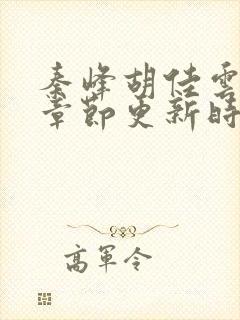 秦峰胡佳雲
章節更新時
高軍令